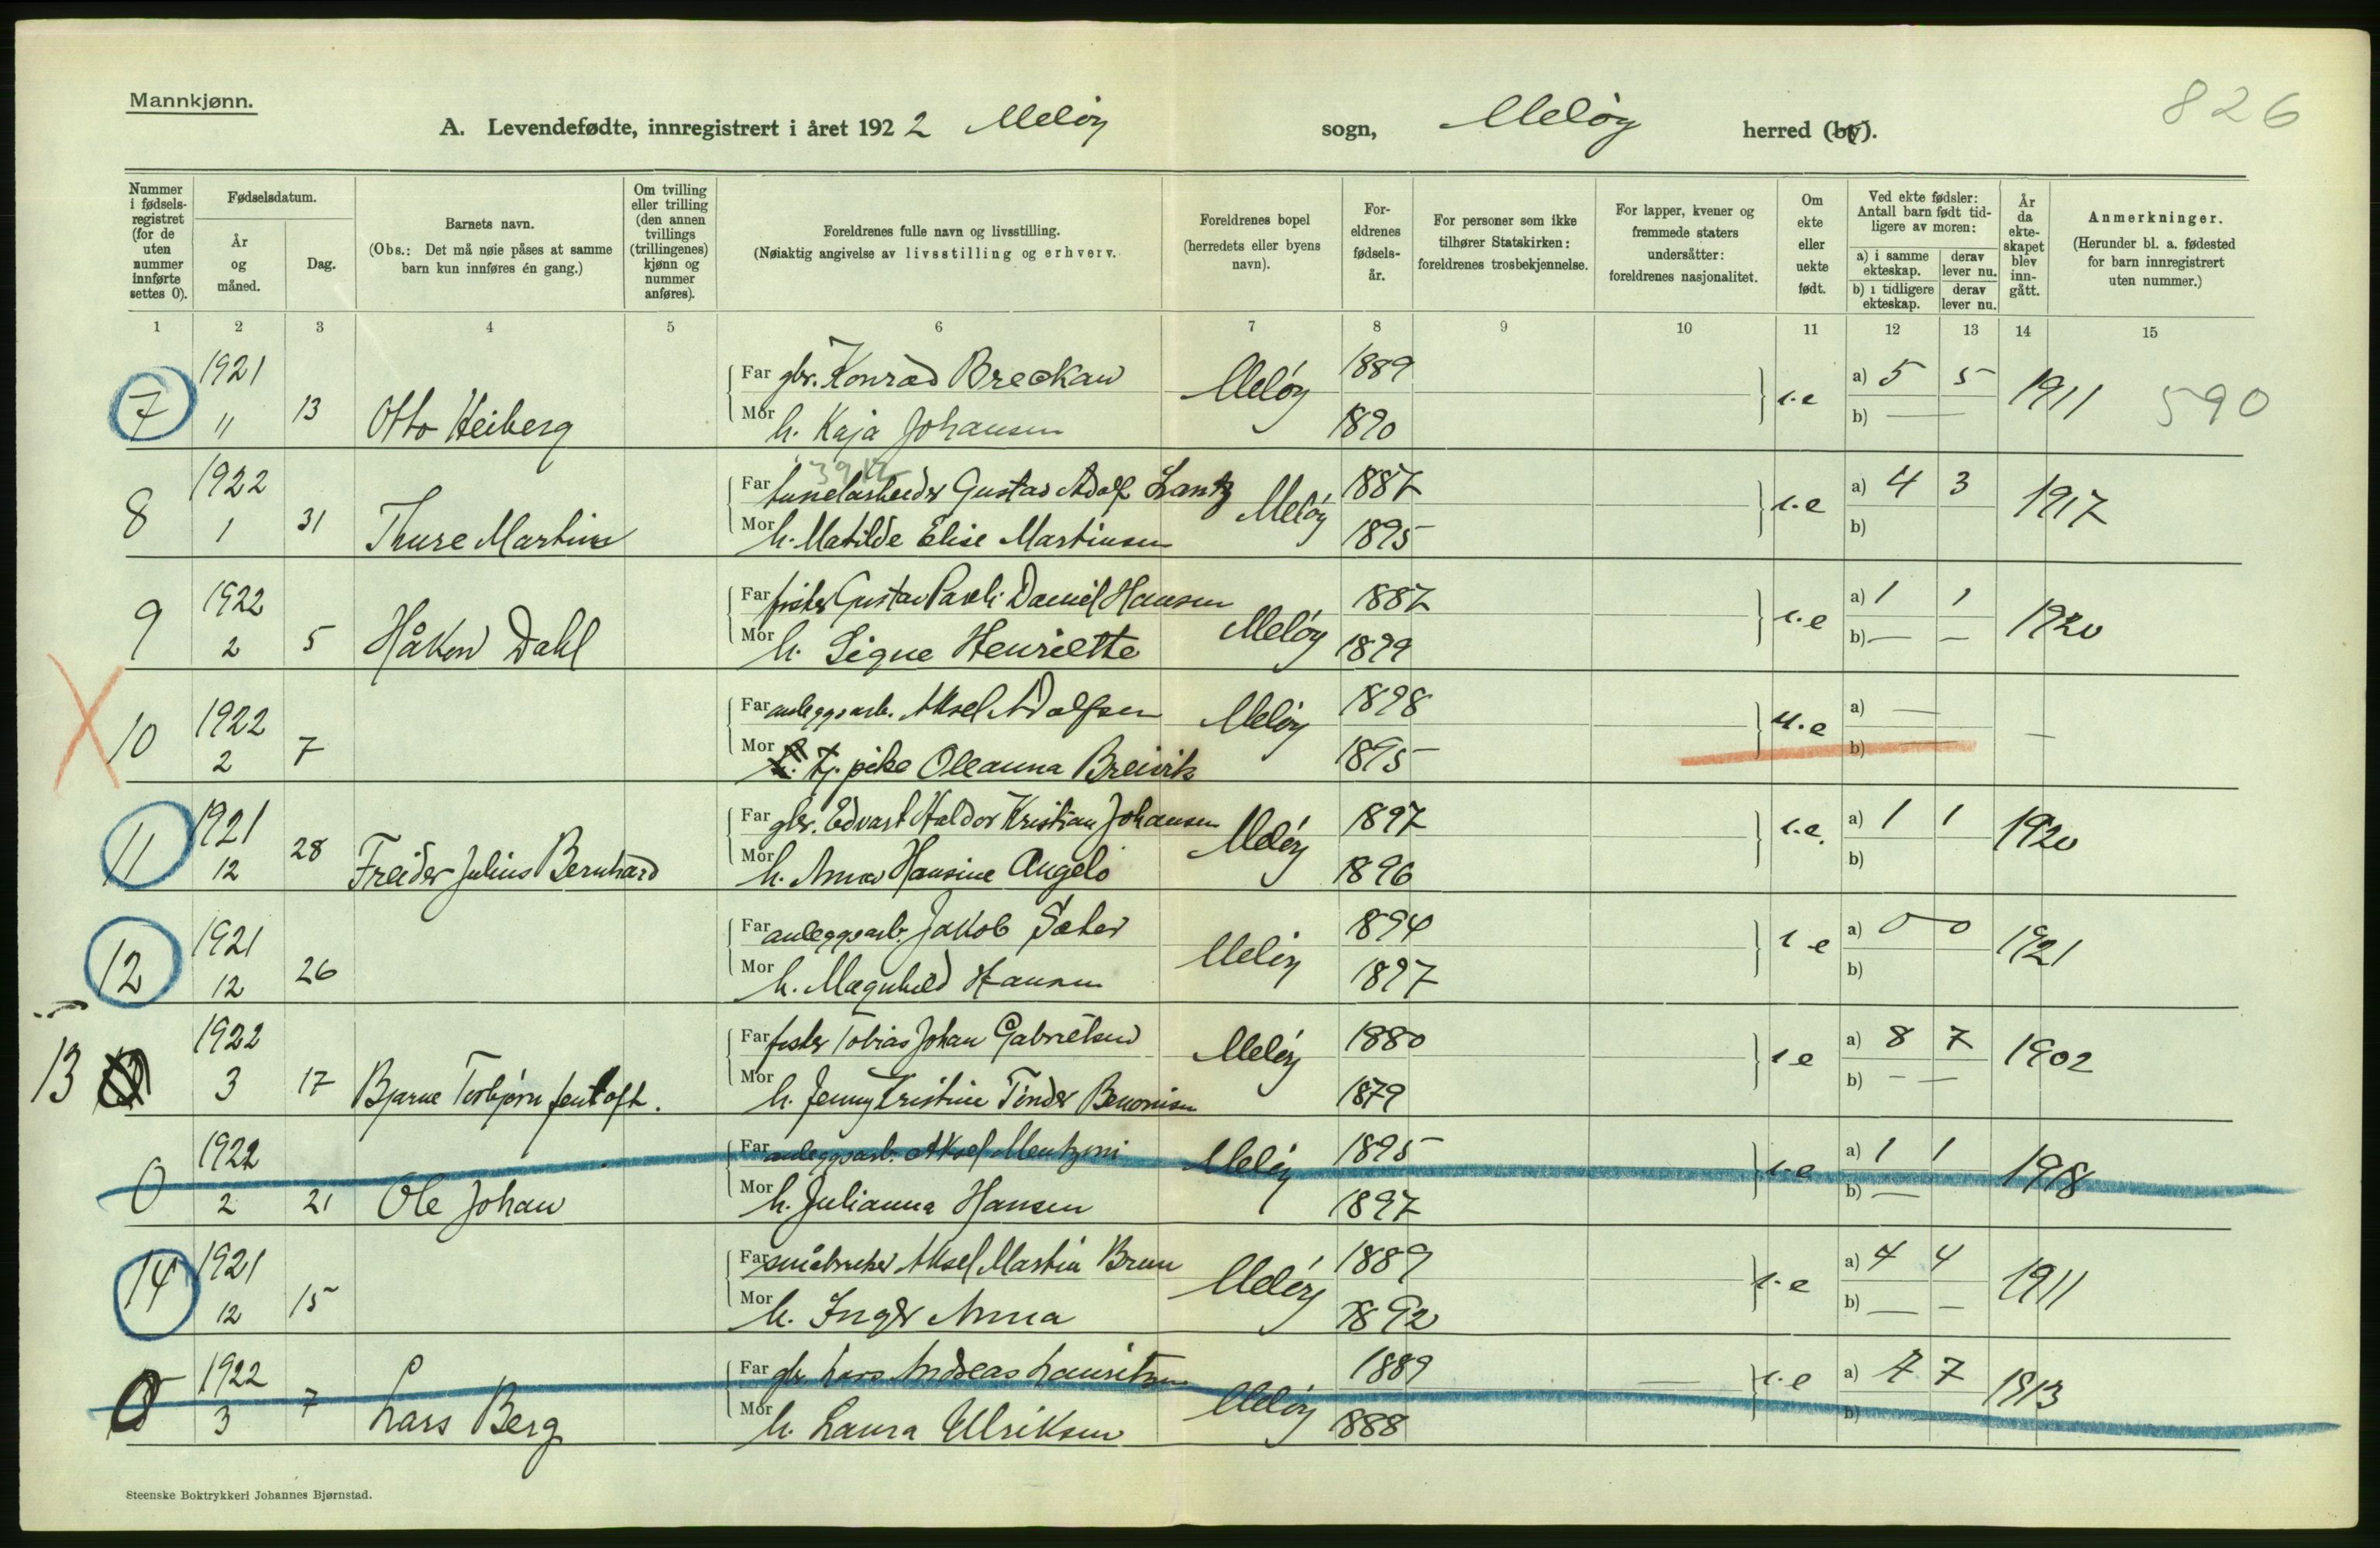 Mannkjønn.
826
A. Levendefødte, innregistrert i året 1922 Meløy sogn, Meløy herred (by).
Nummer i fødselsregistret (for de uten nummer innførte settes 0).
Fødselsdatum.
År og måned.
Dag.
Barnets navn.
(Obs.: Det må nøie påses at samme barn kun innføres én gang.)
Om tvilling eller trilling (den annen tvillings (trillingenes) kjønn og nummer anføres).
Foreldrenes fulle navn og livsstilling.
(Nøiaktig angivelse av livsstilling og erhverv.
Foreldrenes bopel (herredets eller byens navn).
Foreldrenes fødselsår.
For personer som ikke tilhører Statskirken: foreldrenes trosbekjennelse.
For lapper, kvener og fremmede staters undersåtter: foreldrenes nasjonalitet.
Om ekte eller uekte født.
Ved ekte fødsler: Antall barn født tidligere av moren:
a) i samme ekteskap.
derav lever nu.
b) i tidligere ekteskap.
derav lever nu.
År da ekteskapet blev inngått.
Anmerkninger.
(Herunder bl. a. fødested for barn innregistrert uten nummer.)
1 2 3 4 5 6 7 8 9 10 11 12 13 14 15
7 1921 11 13 Otto Heiberg
Far gbr. Konrad Breckan Meløy 1889 e a) 5 5 1911 590
Mor h. Kaja Johansen 1890 b) —
8 1922 1 31 Thure Martin
Far tunelarbeider Gustav Adolf Lantz Meløy 1887 e a) 4 3 1917
Mor h. Matilde Elise Martinsen 1895 b)
9 1922 2 5 Håkon Dahl
Far fisker Gustav Pareli Daniel Hansen Meløy 1887 e a) 1 1 1920
Mor h. Signe Henriette 1899 b) — —
10 1922 2 7
Far anleggsarb. Aksel Adolfsen Meløy 1898 u.e a) — —
Mor tj. pike Oleanna Breivik 1895 b) —
11 1921 12 28 Freider Julius Bernhard
Far gbr. Edvart Haldor Kristian Johansen Meløy 1897 e. a) 1 1 1920
Mor h. Anna Hansine Angelo 1896 b)
12 1921 12 26
Far anleggsarb. Jakob Sæter Meløy 1894 e a) 0 0 1921
Mor h. Magnhild Hansen 1897 b)
13 1922 3 17 Bjarne Torbjørn Jentoft.
Far fisker Tobias Johan Gabrielsen Meløy 1880 e a) 8 7 1902
Mor h. Jenny Kristine Tinder Benonisen 1879 b) — —
0 1922 2 21 Ole Johan
Far anleggsarb. Aksel Mentzoni Meløy 1895 e a) 1 1 1918
Mor h. Julianna Hansen 1897 b) —
14 1921 12 15
Far småbruker Aksel Martin Brun Meløy 1889 e a) 4 4 1911
Mor h. Inger Anna 1892 b) — —
0 1922 3 7 Lars Berg
Far gbr. Lars Andreas Lauritsen Meløy 1889 — e a) 7 7 1913
Mor h. Laura Ulriksen 1888 b)
Steenske Boktrykkeri Johannes Bjørnstad.